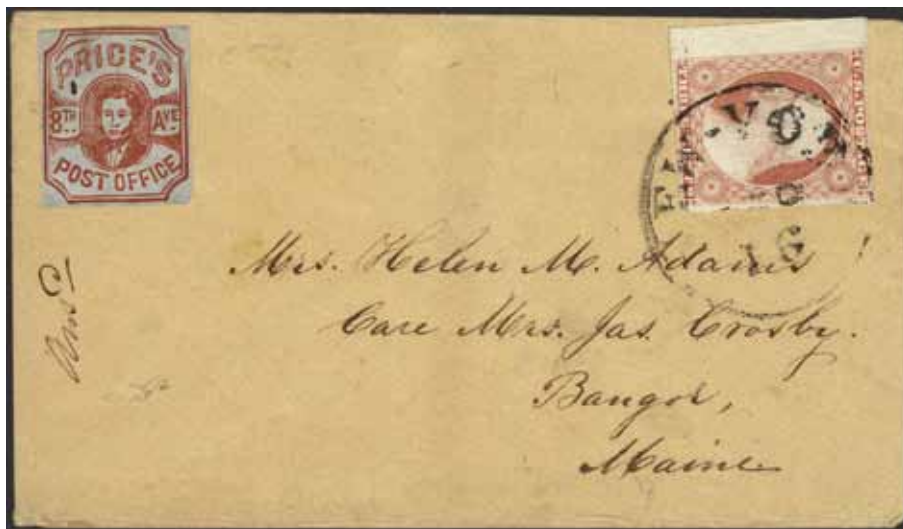 PRICE'S
8TH AVE
POST OFFICE
Mrs. Helen M. Adams
Care Mrs. Jas. Crosby.
Bangor,
Maine